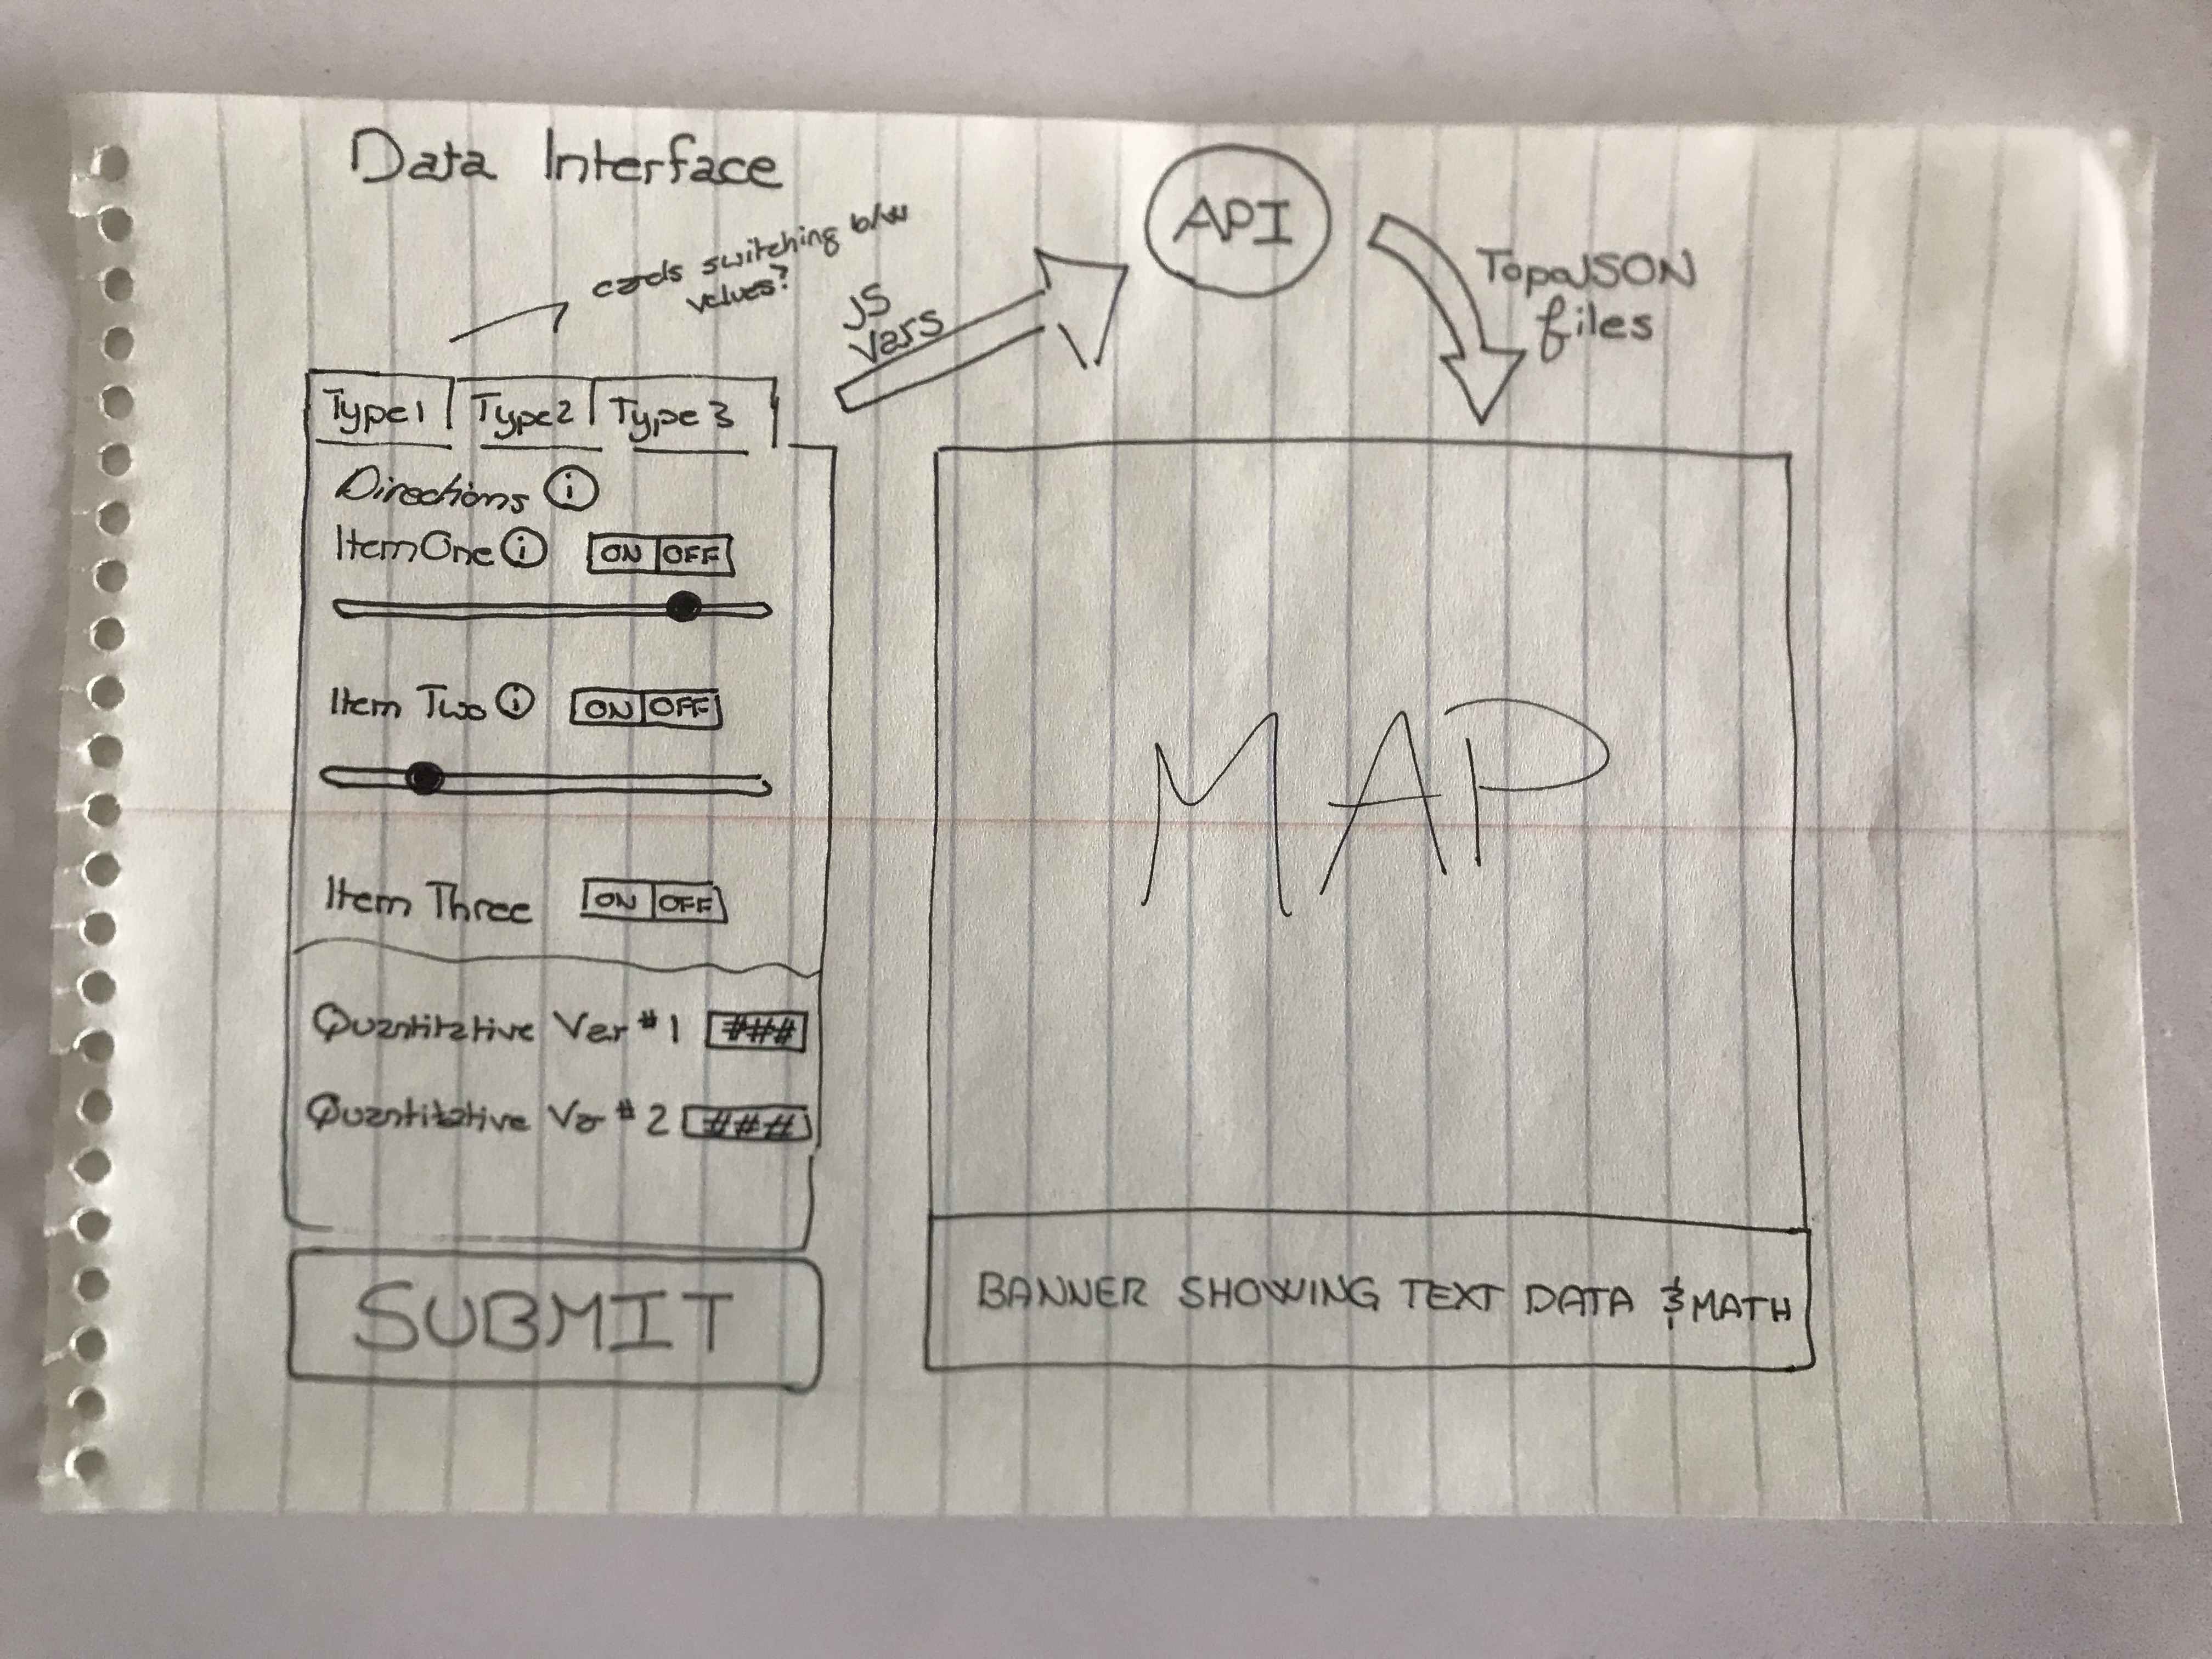 Data Interface
cards switching b/w
values?
Type 1 Type 2 Type 3
Directions i
Item One i ON OFF
Item Two i ON OFF
Item Three ON OFF
Quantitative Var # 1 ###
Quantitative Var # 2 ###
SUBMIT
JS
Vars
API
TopoJSON
files
MAP
BANNER SHOWING TEXT DATA & MATH